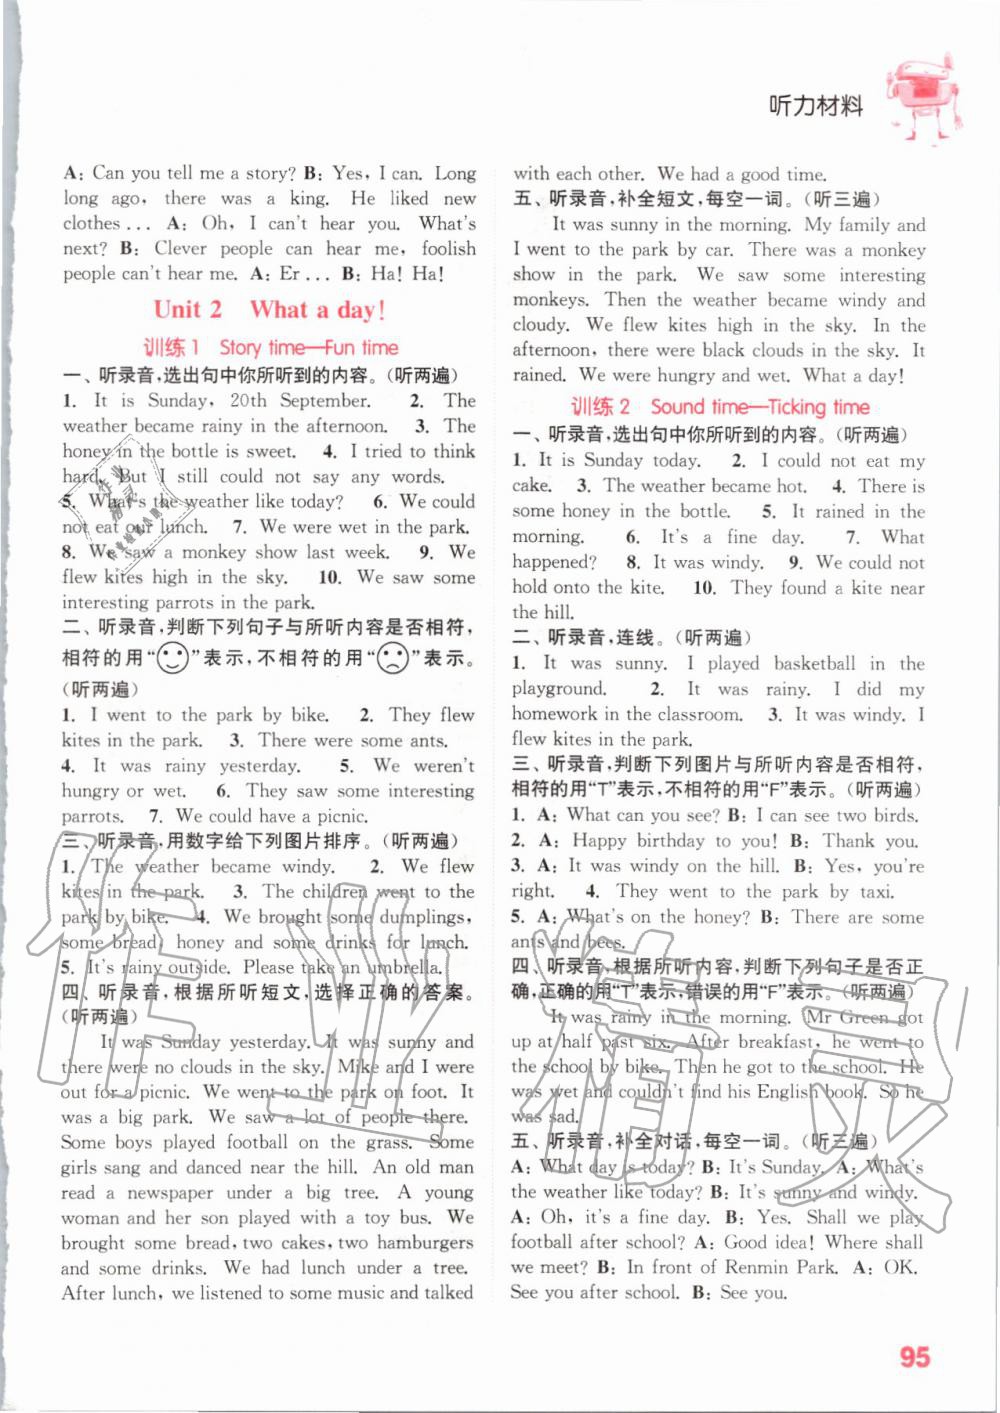 听力材料
A: Can you tell me a story? B: Yes, I can. Long
long ago, there was a king. He liked new
clothes... A: Oh, I can't hear you. What's
next? B: Clever people can hear me, foolish
people can't hear me. A: Er... B: Ha! Ha!
Unit 2 What a day!
训练1 Story time—Fun time
一、听录音,选出句中你所听到的内容。(听两遍)
1. It is Sunday, 20th September. 2. The
weather became rainy in the afternoon. 3. The
honey in the bottle is sweet. 4. I tried to think
hard. But I still could not say any words.
5. What's the weather like today? 6. We could
not eat our lunch. 7. We were wet in the park.
8. We saw a monkey show last week. 9. We
flew kites high in the sky. 10. We saw some
interesting parrots in the park.
二、听录音,判断下列句子与所听内容是否相符,
相符的用“☺”表示,不相符的用“☹”表示。
(听两遍)
1. I went to the park by bike. 2. They flew
kites in the park. 3. There were some ants.
4. It was rainy yesterday. 5. We weren't
hungry or wet. 6. They saw some interesting
parrots. 7. We could have a picnic.
三、听录音,用数字给下列图片排序。(听两遍)
1. The weather became windy. 2. We flew
kites in the park. 3. The children went to the
park by bike. 4. We brought some dumplings,
some bread, honey and some drinks for lunch.
5. It's rainy outside. Please take an umbrella.
四、听录音,根据所听短文,选择正确的答案。
(听两遍)
It was Sunday yesterday. It was sunny and
there were no clouds in the sky. Mike and I were
out for a picnic. We went to the park on foot. It
was a big park. We saw a lot of people there.
Some boys played football on the grass. Some
girls sang and danced near the hill. An old man
read a newspaper under a big tree. A young
woman and her son played with a toy bus. We
brought some bread, two cakes, two hamburgers
and some drinks. We had lunch under a tree.
After lunch, we listened to some music and talked
with each other. We had a good time.
五、听录音,补全短文,每空一词。(听三遍)
It was sunny in the morning. My family and
I went to the park by car. There was a monkey
show in the park. We saw some interesting
monkeys. Then the weather became windy and
cloudy. We flew kites high in the sky. In the
afternoon, there were black clouds in the sky. It
rained. We were hungry and wet. What a day!
训练2 Sound time—Ticking time
一、听录音,选出句中你所听到的内容。(听两遍)
1. It is Sunday today. 2. I could not eat my
cake. 3. The weather became hot. 4. There is
some honey in the bottle. 5. It rained in the
morning. 6. It's a fine day. 7. What
happened? 8. It was windy. 9. We could not
hold onto the kite. 10. They found a kite near
the hill.
二、听录音,连线。(听两遍)
1. It was sunny. I played basketball in the
playground. 2. It was rainy. I did my
homework in the classroom. 3. It was windy. I
flew kites in the park.
三、听录音,判断下列图片与所听内容是否相符,
相符的用“T”表示,不相符的用“F”表示。(听两遍)
1. A: What can you see? B: I can see two birds.
2. A: Happy birthday to you! B: Thank you.
3. A: It was windy on the hill. B: Yes, you're
right. 4. They went to the park by taxi.
5. A: What's on the honey? B: There are some
ants and bees.
四、听录音,根据所听内容,判断下列句子是否正
确,正确的用“T”表示,错误的用“F”表示。(听两遍)
It was rainy in the morning. Mr Green got
up at half past six. After breakfast, he went to
the school by bike. Then he got to the school. He
was wet and couldn't find his English book. So he
was sad.
五、听录音,补全对话,每空一词。(听三遍)
A: What day is today? B: It's Sunday. A: What's
the weather like today? B: It's sunny and windy.
A: Oh, it's a fine day. B: Yes. Shall we play
football after school? A: Good idea! Where shall
we meet? B: In front of Renmin Park. A: OK.
See you after school. B: See you.
95
作业精灵